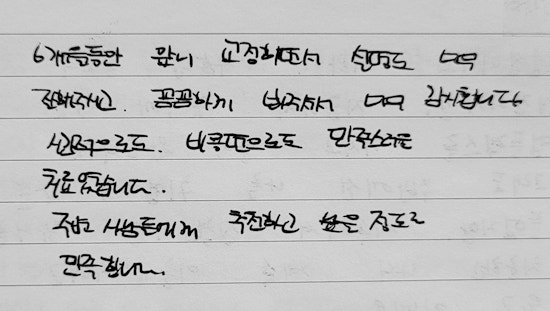 6개월동안 앞니 교정하면서 설명도 너무
잘해주시고. 꼼꼼하게 봐주셔서 너무 감사합니다
심적으로도. 비용면으로도 만족스러운
치료였습니다.
주변 사람들에게 추천하고 싶은 정도로
만족합니다.